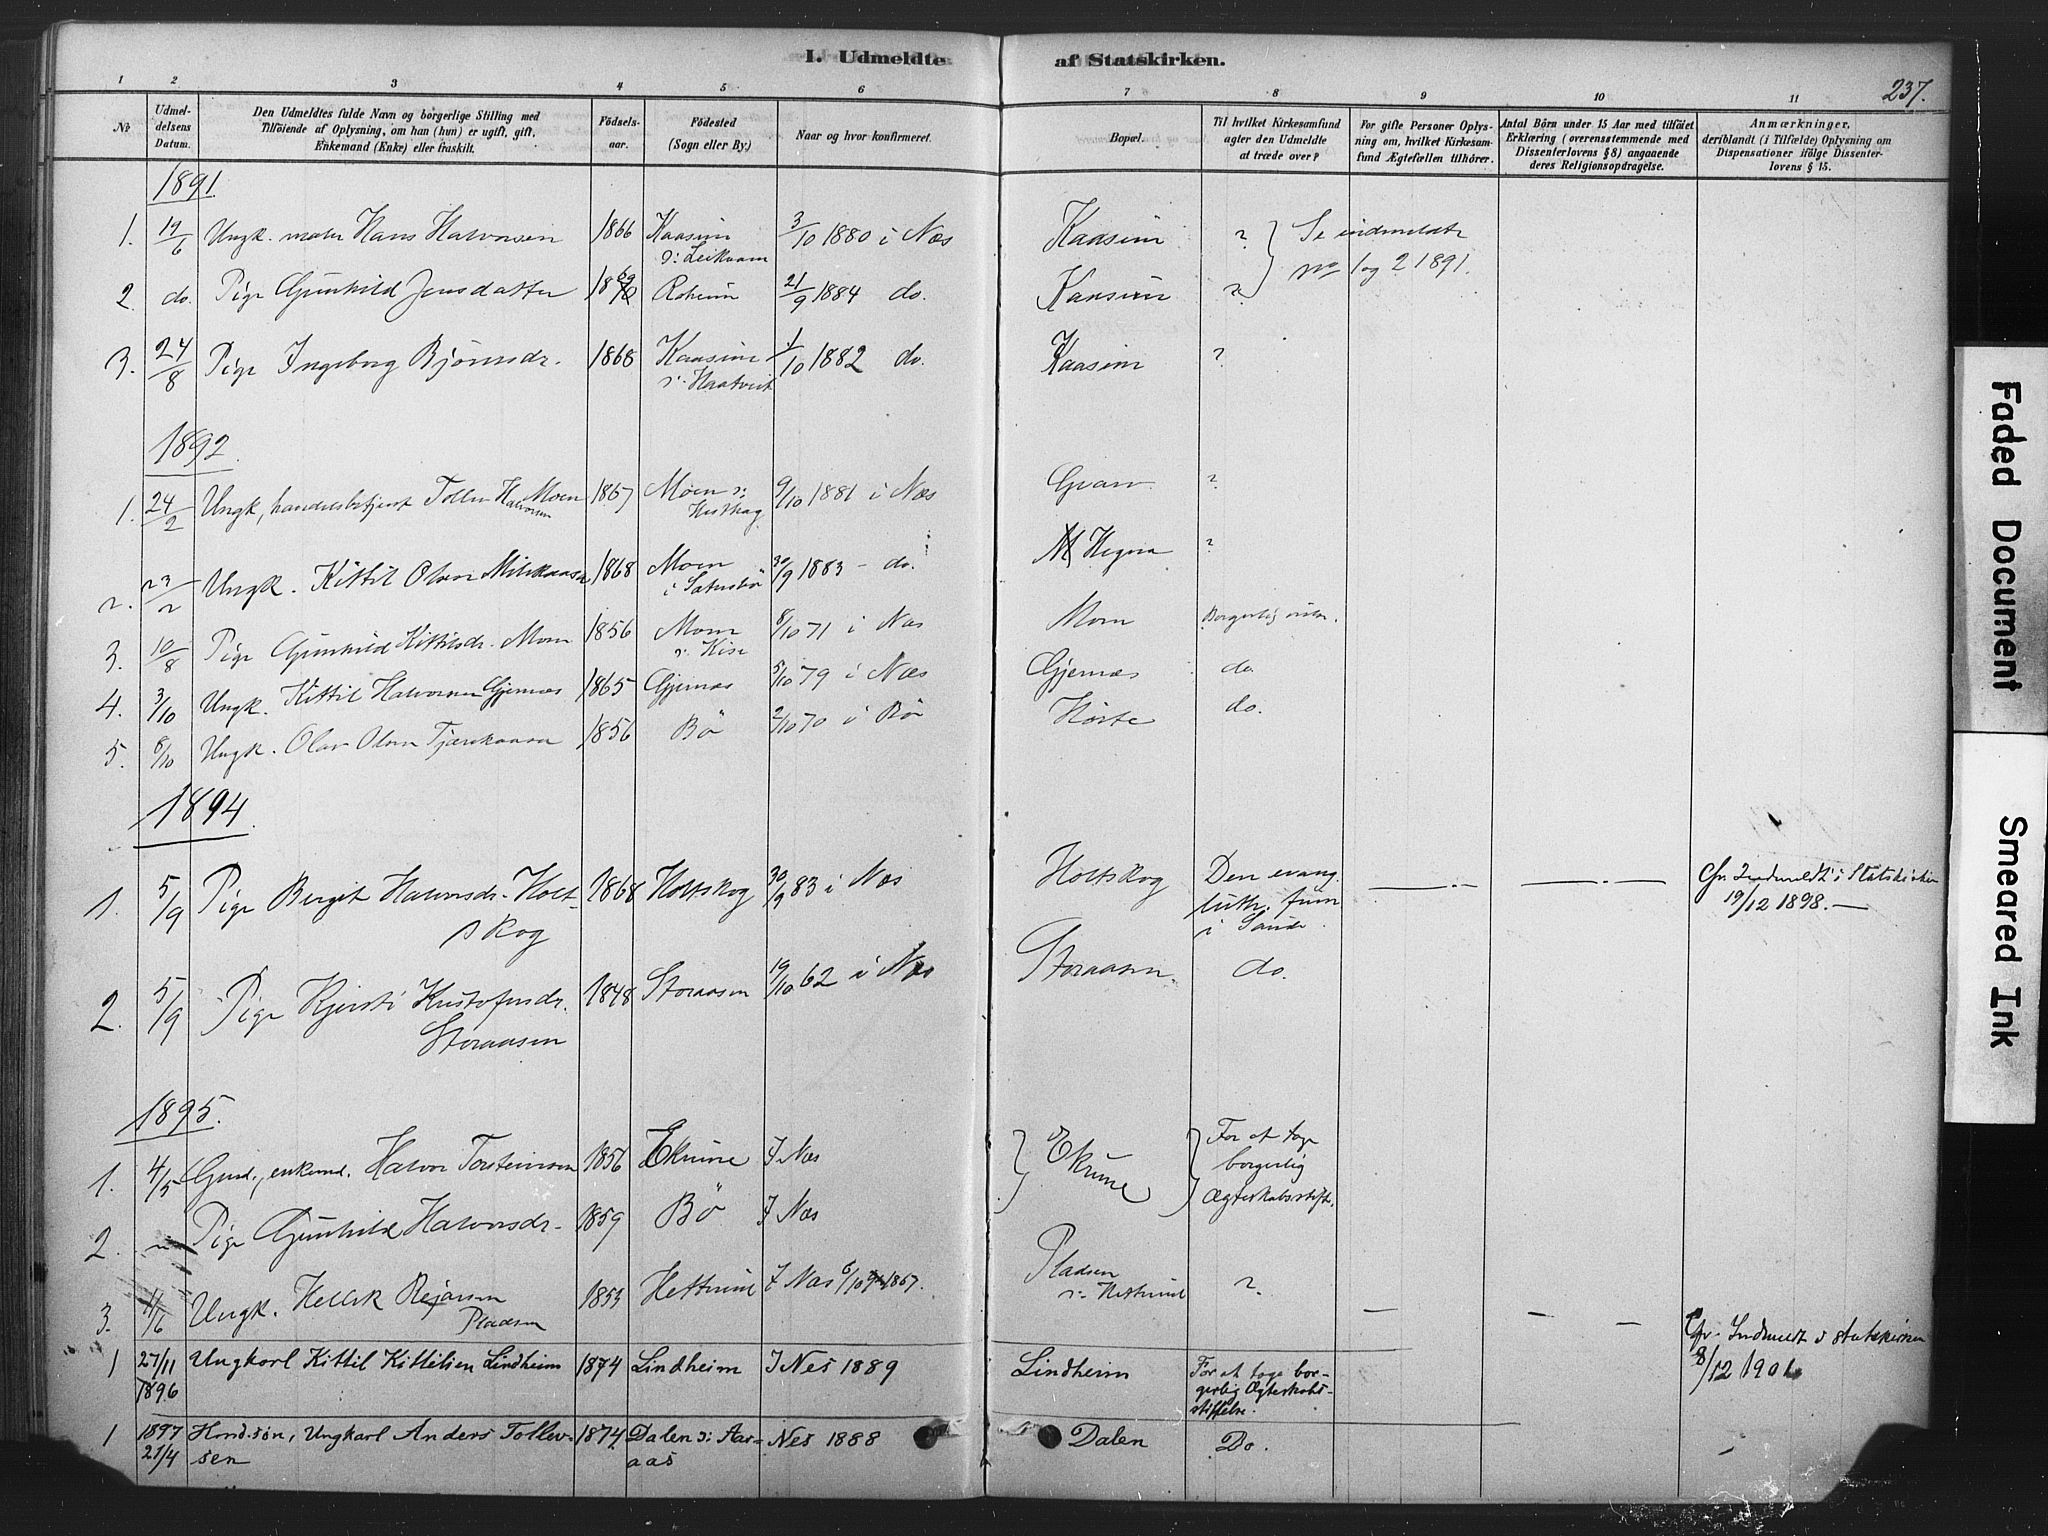 I. Udmeldte af Statskirken.
237.
1 2 3 4 5 6 7 8 9 10 11
No
Udmeldelsens Datum.
Den Udmeldtes fulde Navn og borgerlige Stilling med
Tilføiende af Oplysning, om han (hun) er ugift, gift,
Enkemand (Enke) eller fraskilt.
Fødselsaar.
Fødested
(Sogn eller By.)
Naar og hvor konfirmeret.
Bopæl.
Til hvilket Kirkesamfund
agter den Udmeldte
at træde over?
For gifte Personer Oplysning om, hvilket Kirkesamfund Ægtefællen tilhører.
Antal Børn under 15 Aar med tilføiet
Erklæring (overensstemmende med
Dissenterlovens § 8) angaaende
deres Religionsopdragelse.
Anmærkninger,
deriblandt (i Tilfælde) Oplysning om
Dispensationer ifølge Dissenterlovens § 15.
1891
1. 19/6 Ungk. maler Hans Halvorsen 1866 Kaasim 3/10 1880 i Næs Kaasim ? Se indmeldte
ɔ: Leikvam
no 1 og 2 1891.
2. do. Pige Gunhild Jensdatter 1869 Roheim 21/9 1884 do. Kaasim ?
3. 24/8 Pige Ingeborg Bjørnsdr. 1868 Kaasim 1/10 1882 do. Kaasim ?
ɔ: Haatveit
1892
1. 24/2 Ungk, handelsbetjent Tollev Halvorsen Moen 1867 Moen ɔ: 9/10 1881 i Næs Gvarv ?
2. 23/2 Ungk. Kittil Olsen 1868 Moen 30/9 1883 - do. Hegna ?
3. 10/8 Pige Gunhild Kittilsdr. Moen 1856 Moen 8/10 71 i Næs Moen
4. 3/10 Ungk. Kittil Halvorsen Gjernæs 1865 Gjernæs 5/10 79 i Næs Gjernæs do.
5. 8/10 Ungk. Olav Olsen 1856 Bø 2/10 70 i Bø Hørte do.
1894.
1. 5/9 Pige Berget Halvorsdr. Holt- 1868 Holtskog 30/9 83 i Næs Holtskog Den evang. Cfr. Indmeldt i Statskirken
skog
luth. frim. 19/12 1898.
i Saude.
2. 5/9 Pige Kjersti Kristofersdr. 1848 Storaasen 19/10 62 i Næs Storaasen. do.
Storaasen
1895.
1. 4/5 Gmd., enkemd. Halvor Torsteinsen 1856 Ekrune I Næs Ekrune For at tage
borgerlig
Ægteskabsstift.
2. Pige Gunhild Halvorsdr. 1859 Bø I Næs
3. 11/6 Ungk. Hellik Rejersen 1853 Hettveit I Næs 6/10 1867. Pladsen ?
Pladsen
ɔ: Hettveit
1 27/11 1896 Ungkarl Kittil Kittilsen Lindheim 1874 Lindheim I Nes 1889 Lindheim For at tage bor-
gerlig Ægteskabs-
stiftelse.
Cfr. Indmeldt i statskirken
8/12 1901
1 1897 21/4 Husmd.søn, Ungkarl Anders Tollev- 1874 Dalen ɔ: Aar- Nes 1888 Dalen Do.
sen
aas
Faded Document
Smeared Ink